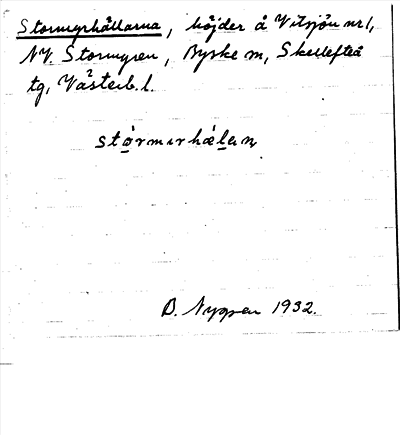 Stormyrhällarna, höjder å Vitsjön nr 1,
NV. Stormyren, Byske sn, Skellefteå
tg, Västerb. l.
stòrmırhælan
D. Nygren 1932.